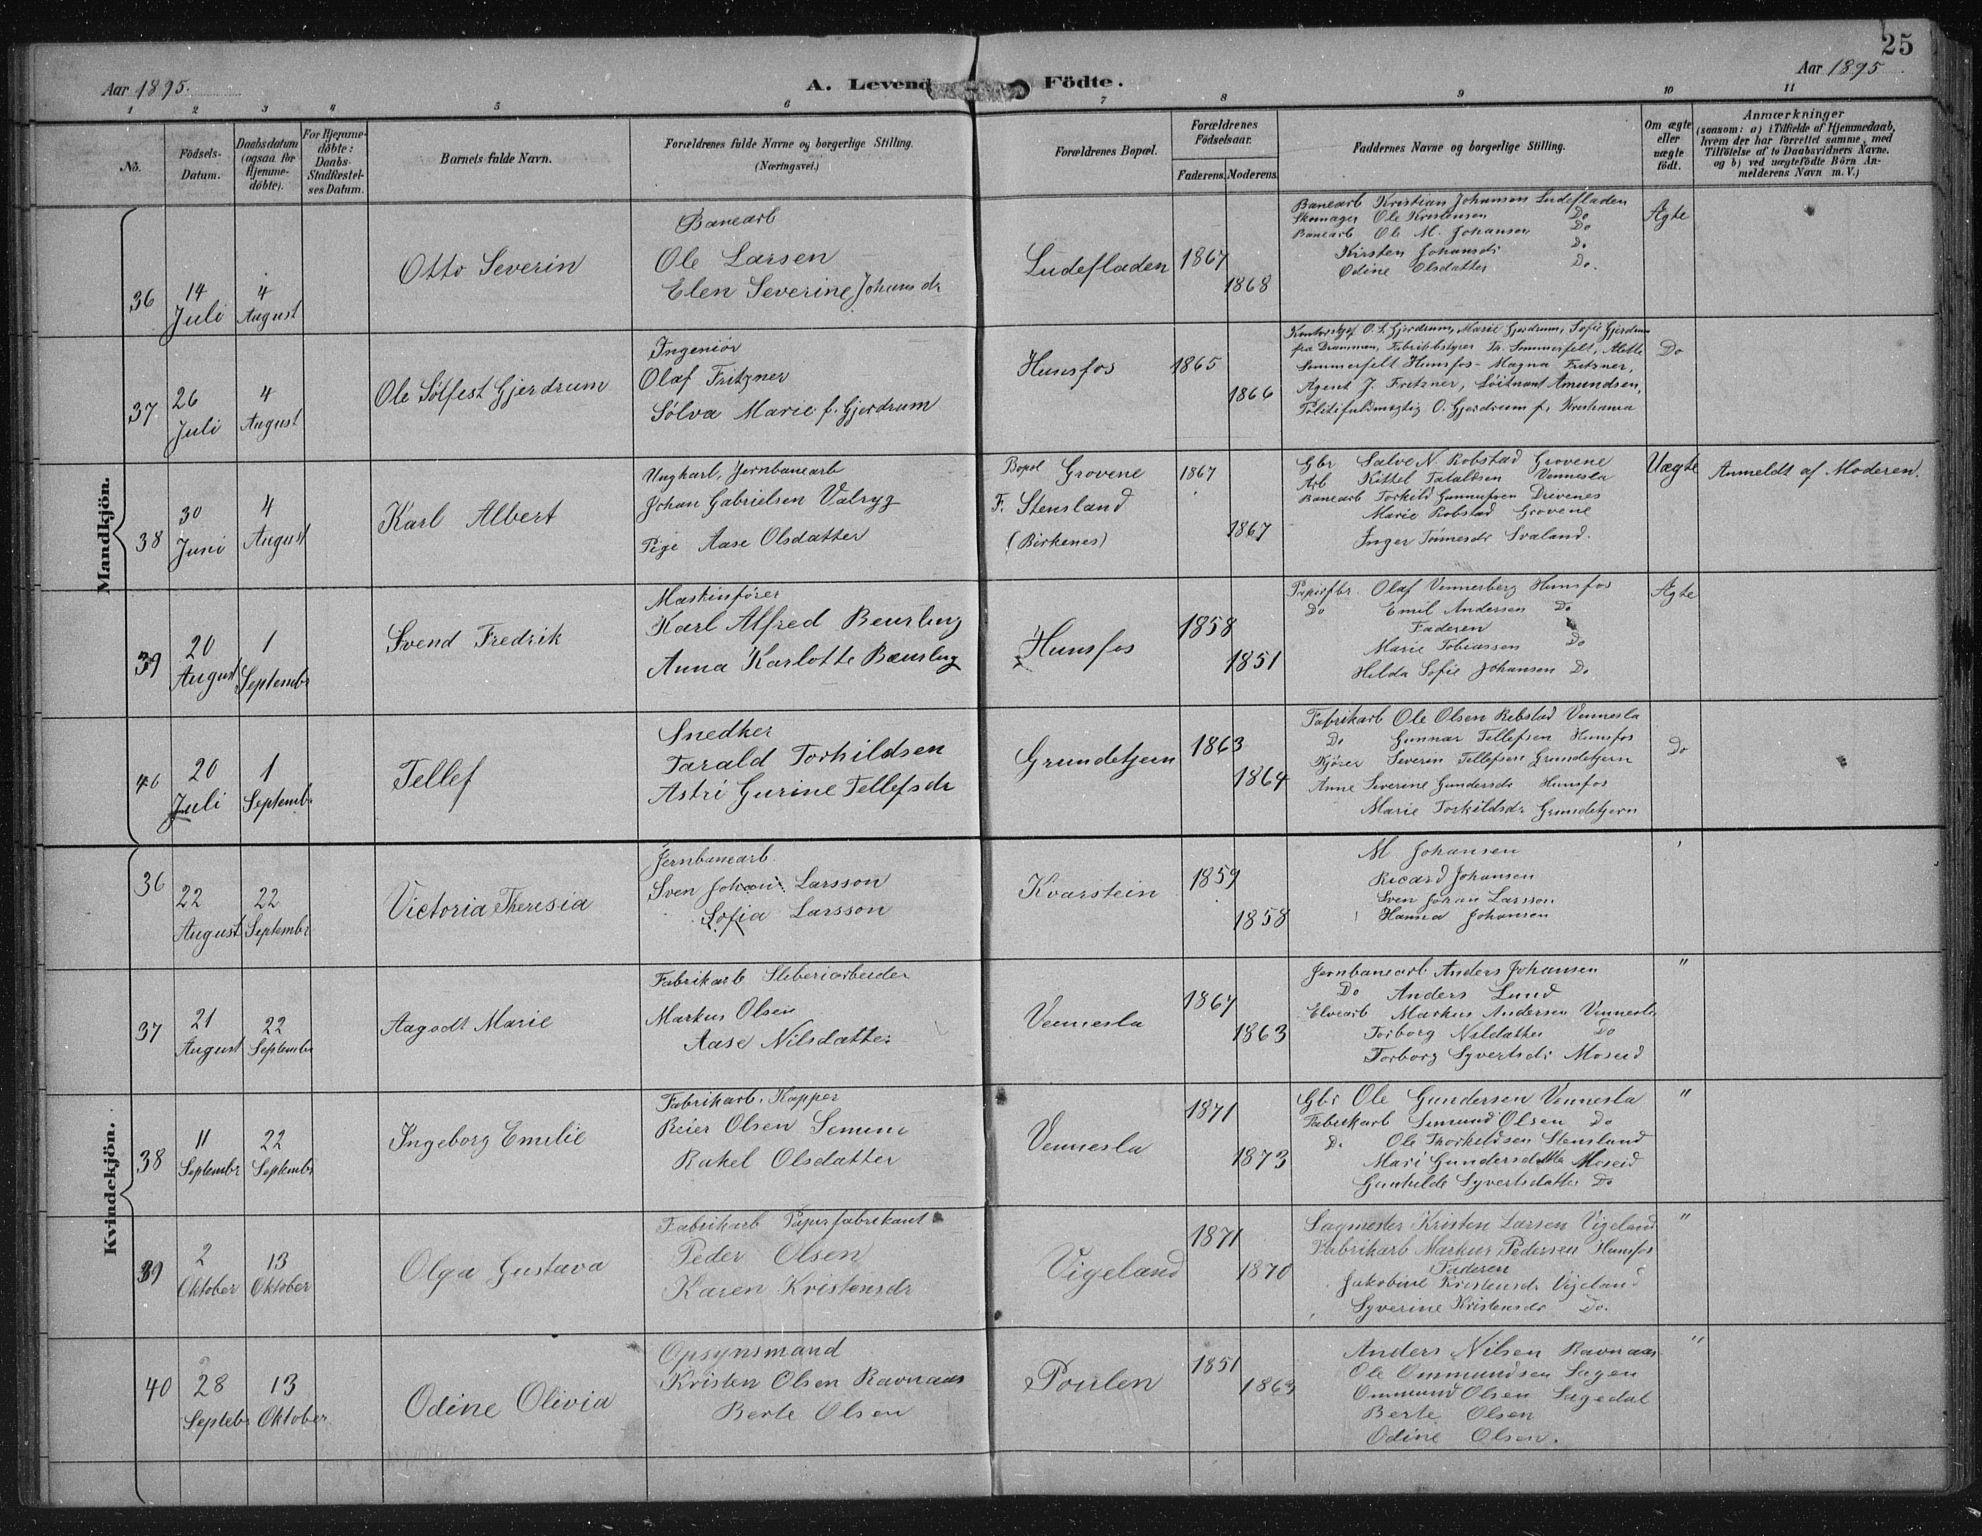 25
Aar 1895.
A. Levende Födte.
Aar 1895
1 2 3 4 5 6 7 8 9 10 11
No.
Födsels-Datum.
Daabsdatum (ogsaa for Hjemmedöbte).
For Hjemmedöbte: Daabs-Stadfæstelses Datum.
Barnets fulde Navn.
Forældrenes fulde Navne og borgerlige Stilling. (Næringsvei.)
Forældrenes Bopæl.
Forældrenes Födselsaar.
Faderens. Moderens.
Faddernes Navne og borgerlige Stilling.
Om ægte eller uægte födt.
Anmærkninger
(saasom: a) i Tilfælde af Hjemmedaab, hvem der har forrettet samme, med Tilföielse af to Daabsvidners Navne. og b) ved uægtefödte Börn Anmelderens Navn m. V.)
Mandkjön.
36
14 Juli
4 August
Otto Severin
Banearb
Ole Larsen
Elen Severine Johansdr
Ludefladen
1867
1868
Banearb Kristian Johansen Ludefladen
Skomager Ole Kristensen Do
Banearb Ole M. Johansen Do
Kirsten Johansdr Do
Odine Olsdatter Do.
Ægte
37
26 Juli
4 August
Ole Sølfest Gjerdrum
Ingeniør
Olaf Fritzner
Sølva Marie f. Gjerdrum
Hunsfos
1865
1866
O. S. Gjerdrum, Marie Gjerdrum, Sofie Gjerdrum
fra Drammen, Fabrikbstyrer Th. Sommerfelt, Alette
Sommerfelt Hunsfos - Magna Fritzner,
Agent J. Fritzner, Løitnant Amundsen,
Politifuldmægtig O. Gjerdrum f. Kristiania
Do
38
30 Juni
4 August
Karl Albert
Ungkarl, Jernbanearb
Johan Gabrielsen Valryg
Pige Aase Olsdatter
Bopæl Grovene
F. Stensland
(Birkenes)
1867
1867
Gbr Salve N. Robstad Grovene
Arb Kittel Taraldsen Vennesla
Banearb Torkild Gunnufsen Drivenes
Marie Robstad Grovene
Inger Tønnesdr Svaland.
Uægte
Anmeldt af Moderen.
39
20 August
1 September
Svend Fredrik
Maskinfører
Karl Alfred Beurling
Anna Karlotte Beurling
Hunsfos
1858
1851
Papirfbr. Olaf Vennerberg Hunsfos
Do Emil Andersen Do
Faderen
Marie Tobiassen Do
Hilda Sofie Johansen Do
Ægte
40
20 Juli
1 Septemb
Tellef
Snedker
Tarald Torkildsen
Astri Gurine Tellefsdr
Grundetjern
1863
1864
Fabrikarb Ole Olsen Rebstad Vennesla
Do Gunnar Tellefsen Hunsfos
Kjører Severin Tellefsen Grundetjern
Anne Severine Gundersdr Hunsfos
Marie Torkildsdr Grundetjern
Do
Kvindekjön.
36
22 August
22 September
Victoria Theresia
Jernbanearb.
Sven Johan Larsson
Sofia Larsson
Kvarstein
1859
1858
M Johansen
Ricard Johansen
Sven Johan Larsson
Hanna Johansen
37
21 August
22 September
Aagodt Marie
Fabrikarb Sliberiarbeider
Markus Olsen
Aase Nilsdatter
Vennesla
1867
1863
Jernbanearb Anders Johansen
Do Anders Lund
Elvearb Markus Andersen Vennesla
Torborg Nilsdatter Do
Torborg Syvertsdr Moseid
"
38
11 Septembr
22 Septembr
Ingeborg Emilie
Fabrikarb. Kapper
Reier Olsen
Rakel Olsdatter
Vennesla
1871
1873
Gbr Ole Gundersen Vennesla
Fabrikarb Simund Olsen Do
Do Ole Thorkildsen Stensland
Mari Gundersdatter Moseid
Gunhilde Syvertsdatter Do
"
39
2 Oktober
13 Oktober
Olga Gustava
Fabrikarb Papirfabrikant
Peder Olsen
Karen Kristensdr
Vigeland
1871
1870
Sagmester Kristen Larsen Vigeland
Fabrikarb Markus Pedersen Hunsfos
Faderen
Jakobine Kristensdr Vigeland
Syverine Kristensdr Do.
"
40
28 Septebr
13 Oktober
Odine Olivia
Opsynsmand
Kristen Olsen Ravnaas
Berte Olsen
Poulen
1851
1863
Anders Nilsen Ravnaas
Ole Ommundsen Sagen
Ommund Olsen Sagedal
Berte Olsen
Odine Olsen.
"